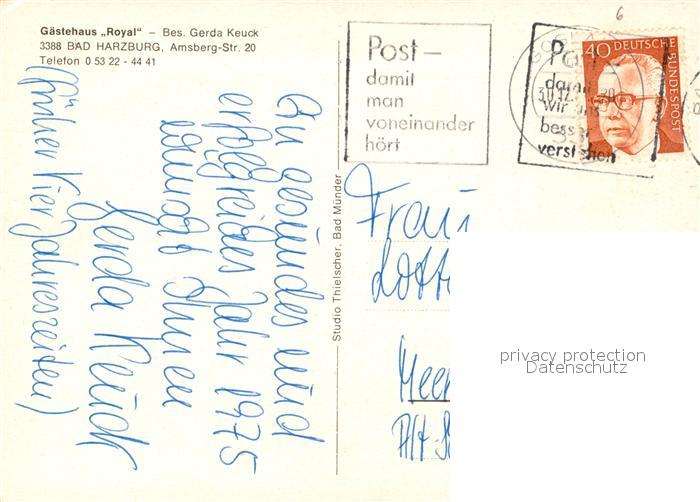 Gästehaus „Royal" – Bes. Gerda Keuck
3388 BAD HARZBURG, Amsberg-Str. 20
Telefon 0 53 22 - 44 41
Ein gesundes und
erfolgreiches Jahr 1975
wünscht Ihnen
Gerda Keuck
(früher Vier Jahreszeiten)
Studio Thielscher, Bad Münder
Post –
damit
man
voneinander
hört
Post
damit
wir uns
besser
verstehen
30.12.
40 DEUTSCHE
BUNDESPOST
6
Frau
Lott
Meer
Alt-
privacy protection
Datenschutz